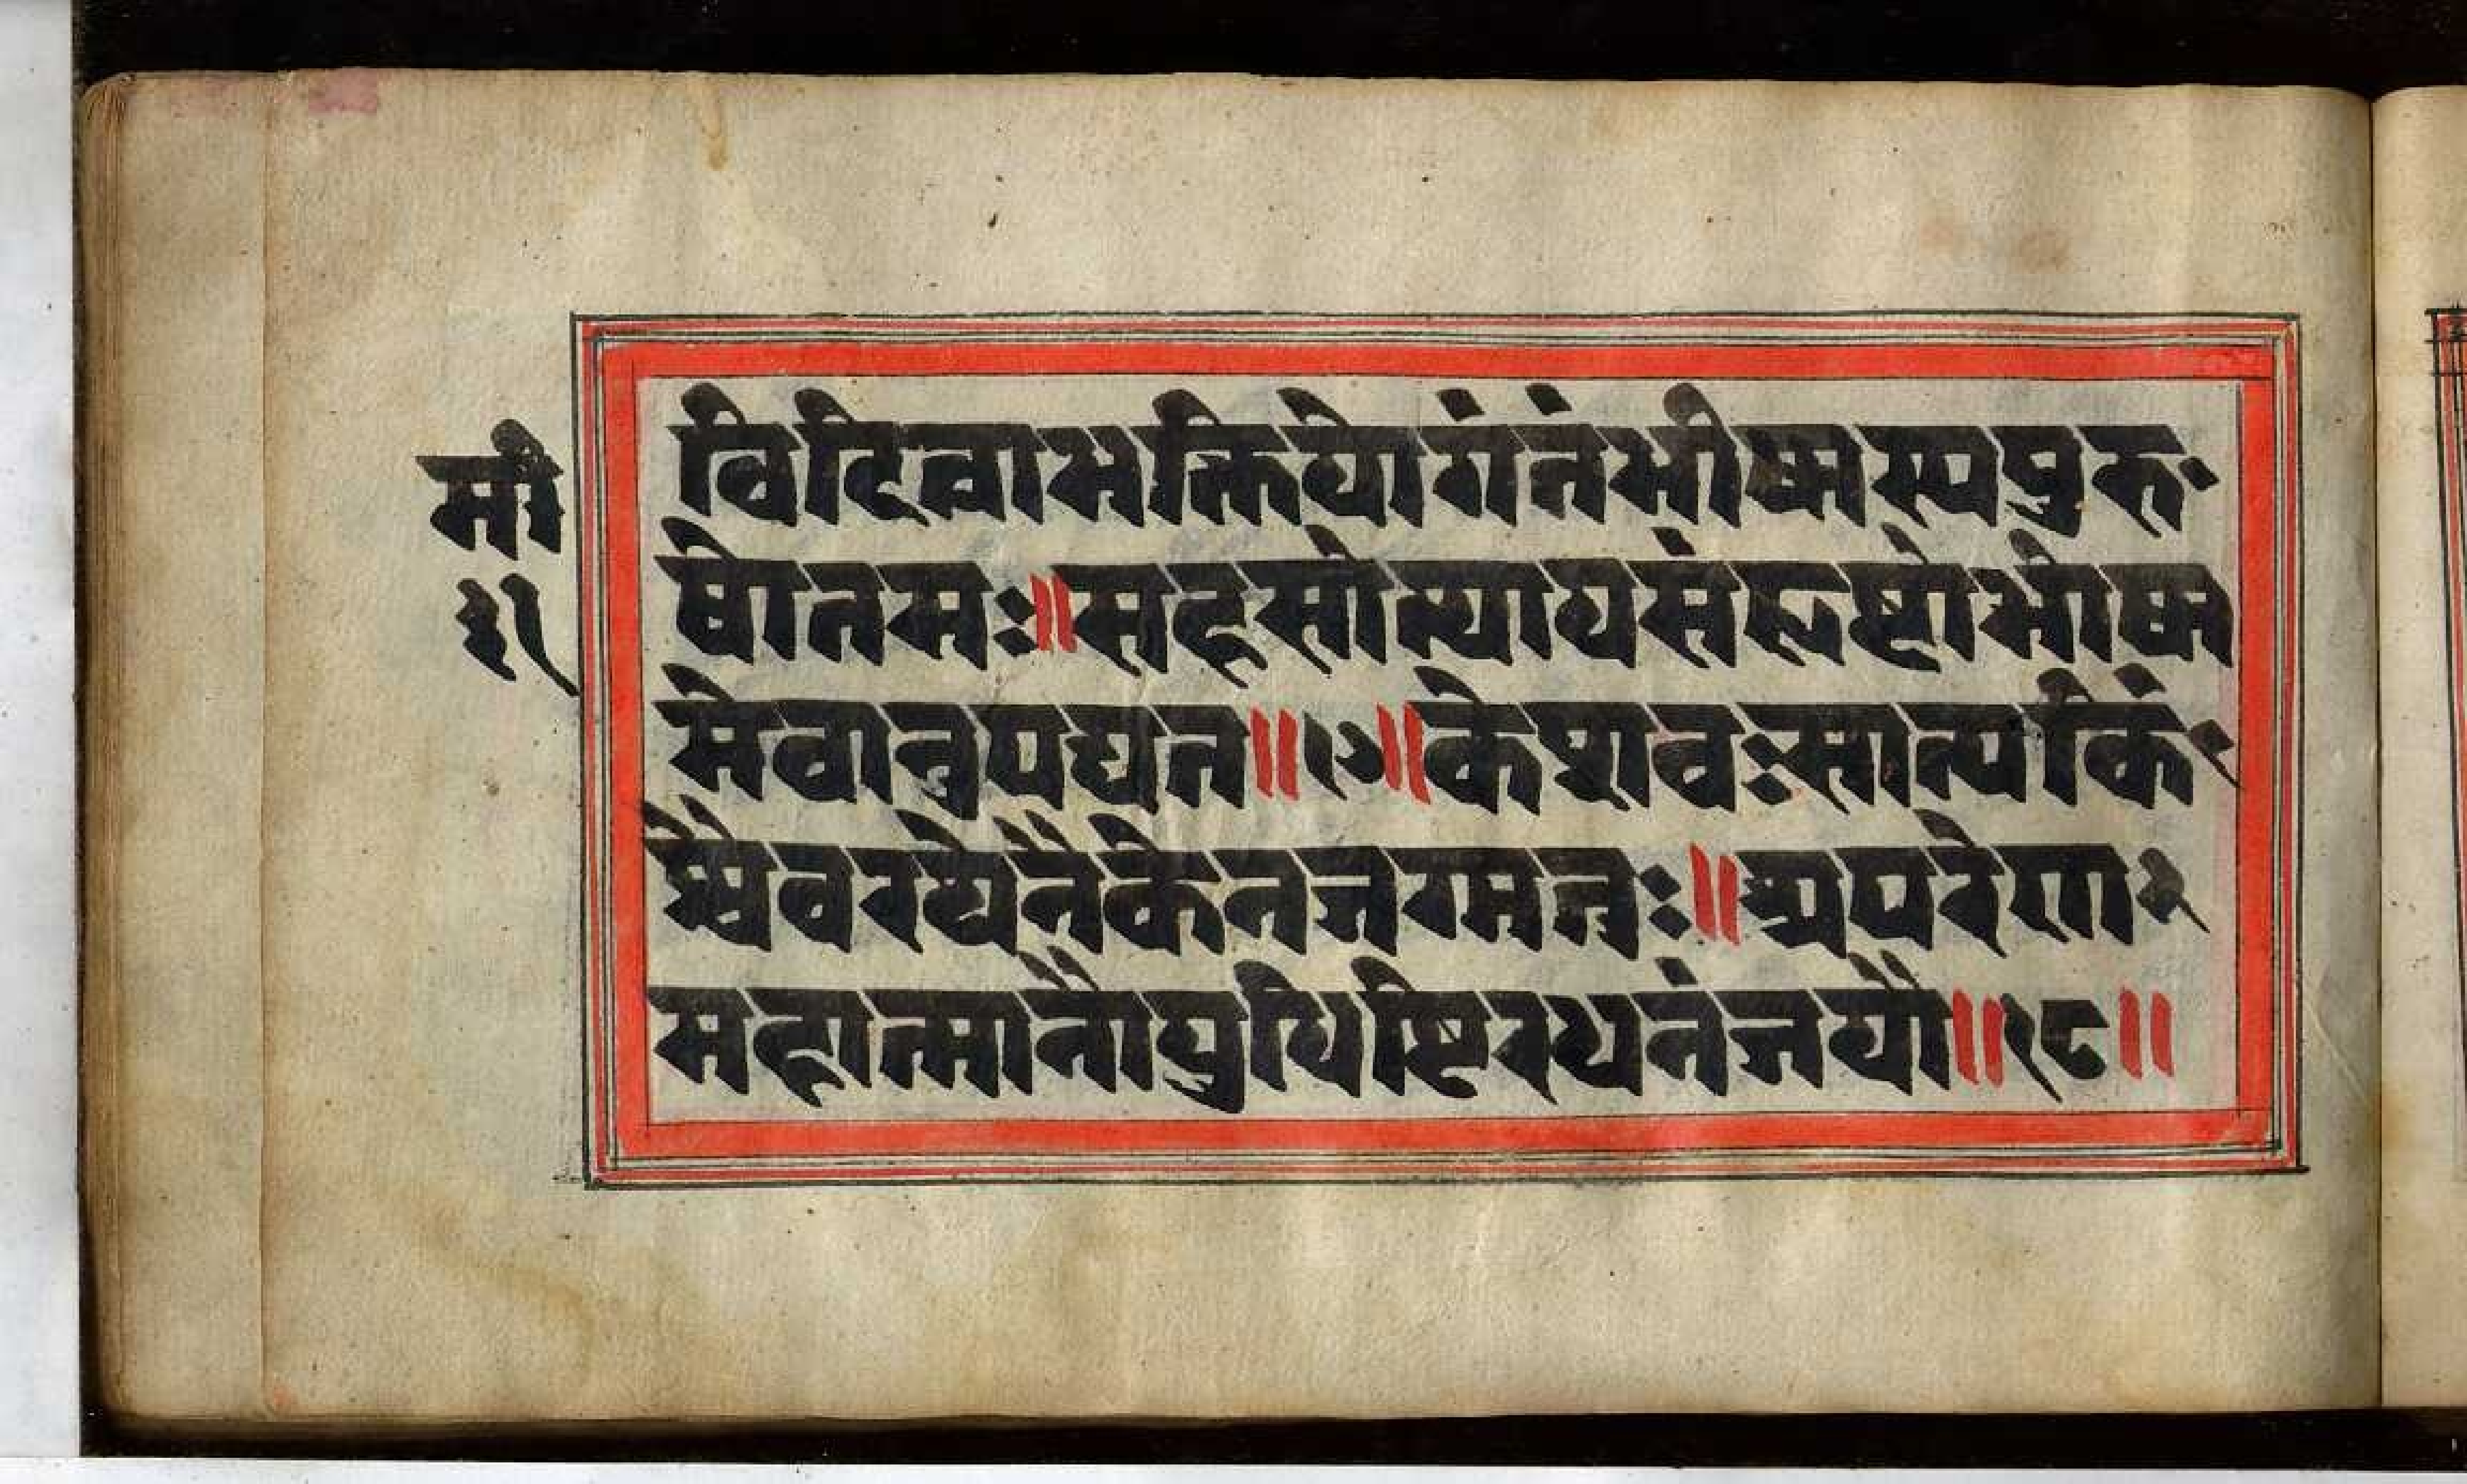 विदित्वाभक्तियोगंतंभीष्मस्यपुरु
षोतमः॥सहसोत्थायसंहृष्टोभीष्म
मेवान्वपद्यत॥१७॥केशवःसात्यकि
श्चैवरथेनैकेनजग्मतुः॥अपरेण
महात्मानौयुधिष्ठिरधनंजयौ॥१८॥
भी
३१